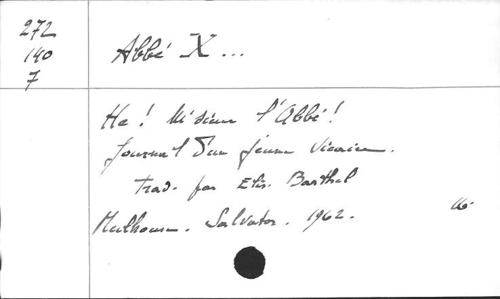 272
140
7
Abbé X ...
He ! M'sieur l'Abbé !
Journal d'un jeune vicaire.
Trad. par Elis. Barthel
Mulhouse. Salvator. 1962.
16.